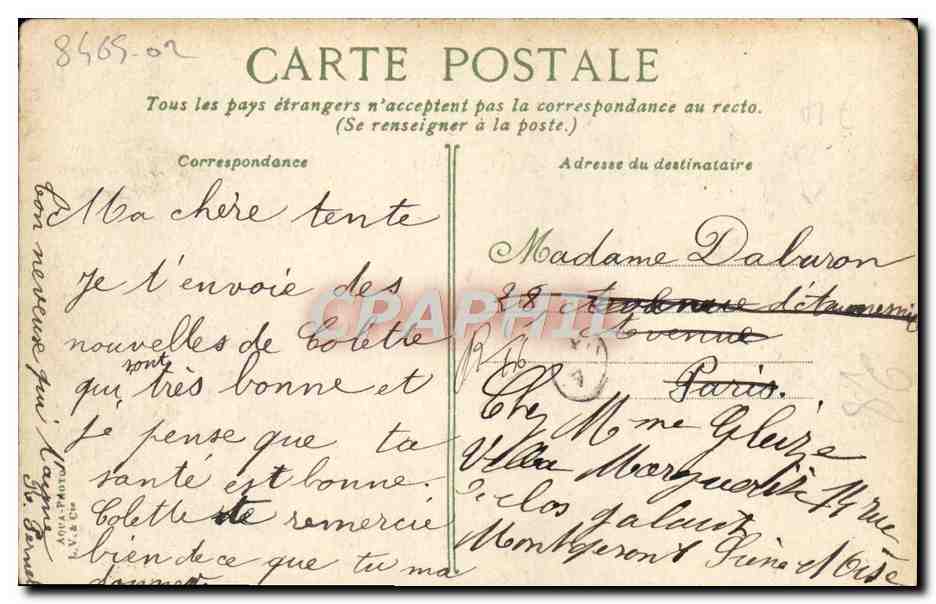 8465-02
CARTE POSTALE
Tous les pays étrangers n'acceptent pas la correspondance au recto.
(Se renseigner à la poste.)
Correspondance
Ma chère tente
Je t'envoie des
nouvelles de Colette
qui sont très bonne et
je pense que ta
santé est bonne.
Colette te remercie
bien de ce que tu ma
donner.
bon neveuse qui t'aime
AQUA-PHOTO
L.V. & Cie
Adresse du destinataire
Madame Daburon
28
Avenue
Paris.
Chez Mme Gleize
Villa Marguerite 14 rue
clos galant
Montgeron Seine et Oise
CPAPHIL